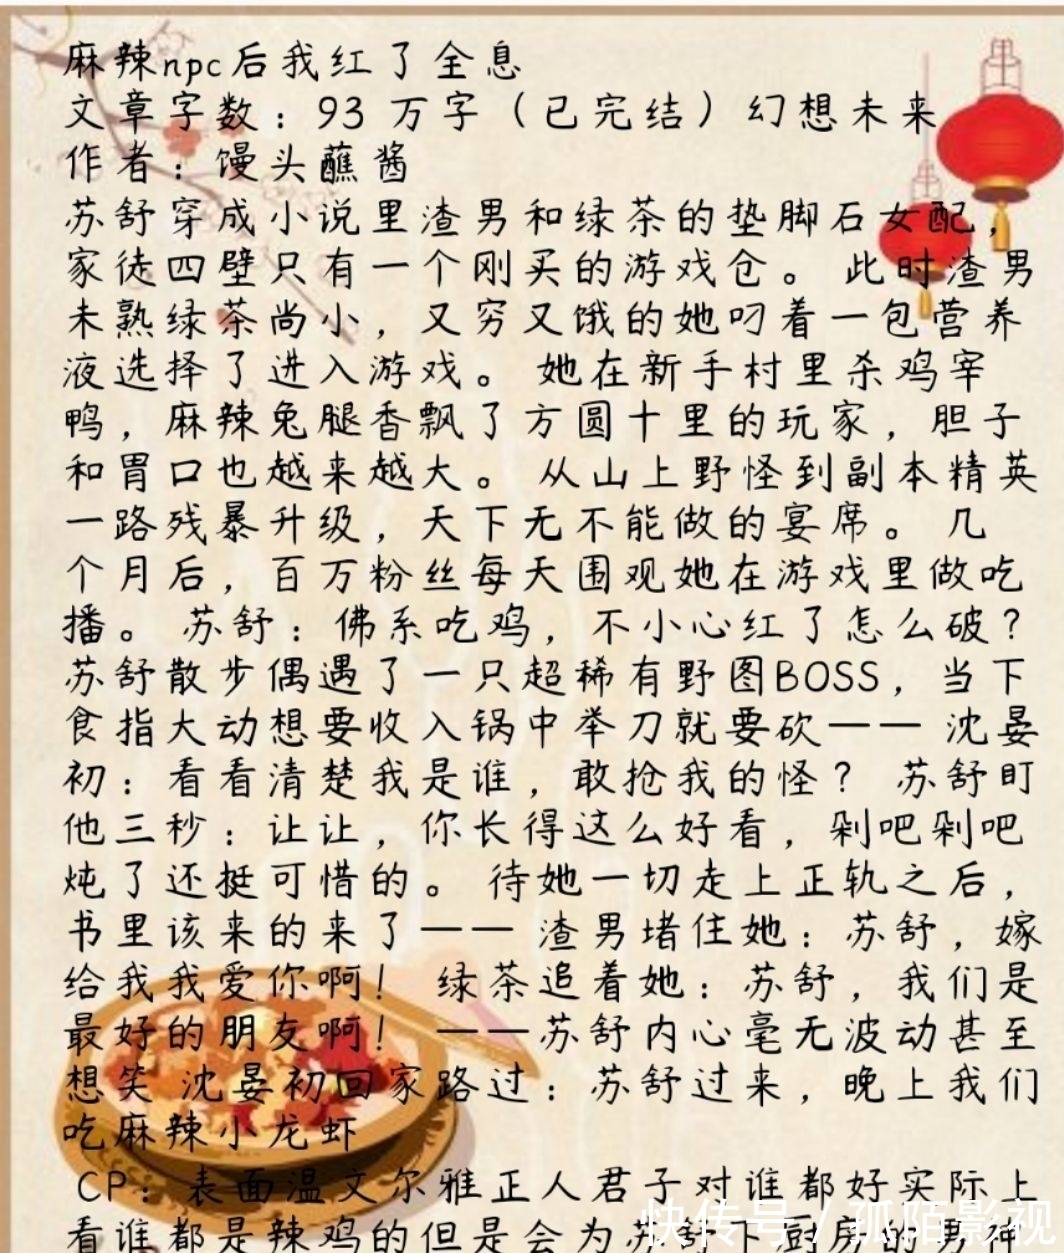 麻辣npc后我红了全息
文章字数：93 万字（已完结）幻想未来
作者：馒头蘸酱
苏舒穿成小说里渣男和绿茶的垫脚石女配，
家徒四壁只有一个刚买的游戏仓。 此时渣男
未熟绿茶尚小，又穷又饿的她叼着一包营养
液选择了进入游戏。 她在新手村里杀鸡宰
鸭，麻辣兔腿香飘了方圆十里的玩家，胆子
和胃口也越来越大。 从山上野怪到副本精英
一路残暴升级，天下无不能做的宴席。 几
个月后，百万粉丝每天围观她在游戏里做吃
播。 苏舒：佛系吃鸡，不小心红了怎么破？
苏舒散步偶遇了一只超稀有野图BOSS，当下
食指大动想要收入锅中举刀就要砍—— 沈晏
初：看看清楚我是谁，敢抢我的怪？ 苏舒盯
他三秒：让让，你长得这么好看，剁吧剁吧
炖了还挺可惜的。 待她一切走上正轨之后，
书里该来的来了—— 渣男堵住她：苏舒，嫁
给我我爱你啊！ 绿茶追着她：苏舒，我们是
最好的朋友啊！ ——苏舒内心毫无波动甚至
想笑 沈晏初回家路过：苏舒过来，晚上我们
吃麻辣小龙虾
CP：表面温文尔雅正人君子对谁都好实际上
看谁都是辣鸡的但是会为苏舒下厨房的男神
快传号／孤陌影视